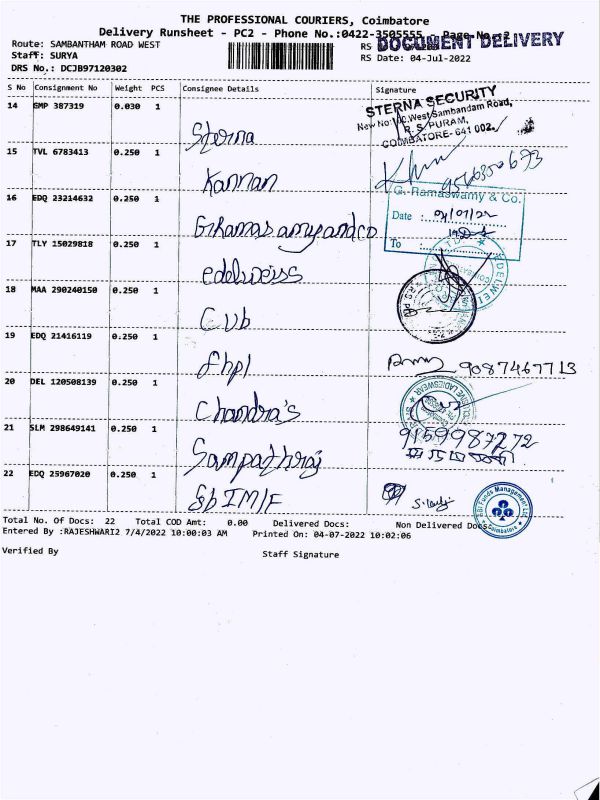 THE PROFESSIONAL COURIERS, Coimbatore
Delivery Runsheet - PC2 - Phone No.:0422-3505555 - Page No.:
DOCUMENT DELIVERY
Route: SAMBANTHAM ROAD WEST
Staff: SURYA
RS Date: 04-Jul-2022
DRS No.: DCJB97120302
S No Consignment No Weight PCS Consignee Details Signature
14 GMP 387319 0.030 1 Sterna
STERNA SECURITY
West Sambandam Road,
R.S. PURAM,
COIMBATORE- 641 002.
15 TVL 6783413 0.250 1 Kannan
16 EDQ 23214632 0.250 1 G.Ramasamy and co
G. Ramaswamy & Co.
Date : 04/07/22
To :
17 TLY 15029818 0.250 1 edelweiss
EDELWEI
18 MAA 290240150 0.250 1 Cub
19 EDQ 21416119 0.250 1 fhpl
9087467713
20 DEL 120508139 0.250 1 Chandra's
LADIESWEAR
21 SLM 298649141 0.250 1 Sampathraj
9159987272
22 EDQ 25967020 0.250 1 SbIM/F
SBI Funds Management Ltd
Coimbatore
Total No. Of Docs: 22 Total COD Amt: 0.00 Delivered Docs: Non Delivered Docs:
Entered By :RAJESHWARI2 7/4/2022 10:00:03 AM Printed On: 04-07-2022 10:02:06
Verified By Staff Signature